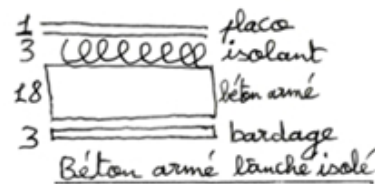 1 placo
3 isolant
18 béton armé
3 bardage
Béton armé banché isolé